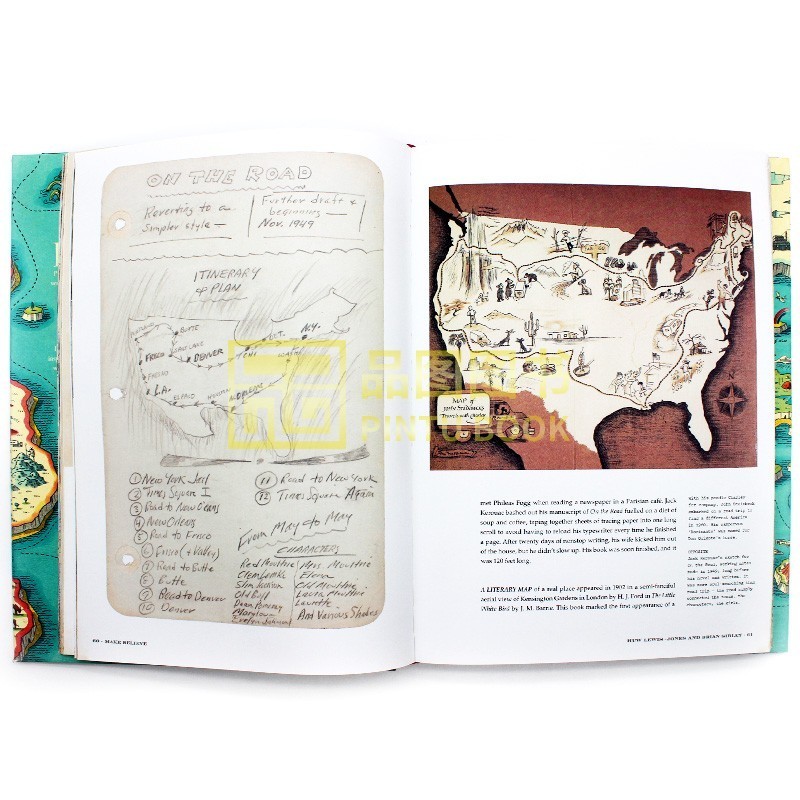 ON THE ROAD
Reverting to a
Simpler style —
Further draft &
beginning —
Nov. 1949
ITINERARY
& PLAN
BUTTE
N.Y.
FRISCO
SALT LAKE
DENVER
CHI
FRESNO
L.A.
EL PASO
① New York Jail
② Times Square I
③ Road to New Orleans
④ New Orleans
⑤ Road to Frisco
⑥ Frisco (+ Valley)
⑦ Road to Butte
⑧ Butte
⑨ Road to Denver
⑩ Denver
⑪ Road to New York
⑫ Times Square Again
From May to May
CHARACTERS
Red Moultrie
Old Bull
Dean Pomeray
Marylou
Mrs. Moultrie
Laura Moultrie
And Various Shades
60 · MAKE BELIEVE
MAP of
John Steinbeck's
Travels with Charley
N
品图图书
PINTU BOOK
met Phileas Fogg when reading a newspaper in a Parisian café. Jack
Kerouac bashed out his manuscript of On the Road fuelled on a diet of
soup and coffee, taping together sheets of tracing paper into one long
scroll to avoid having to reload his typewriter every time he finished
a page. After twenty days of nonstop writing, his wife kicked him out
of the house, but he didn't slow up. His book was soon finished, and it
was 120 feet long.
A LITERARY MAP of a real place appeared in 1902 in a semi-fanciful
aerial view of Kensington Gardens in London by H. J. Ford in The Little
White Bird by J. M. Barrie. This book marked the first appearance of a
With his poodle Charley
for company, John Steinbeck
embarked on a road trip to
find a different America
in 1960. His campervan
'Rocinante' was named for
Don Quixote's horse.
OPPOSITE
Jack Kerouac's sketch for
On the Road, working notes
made in 1949, long before
his novel was written.
HUW LEWIS-JONES AND BRIAN SIBLEY · 61